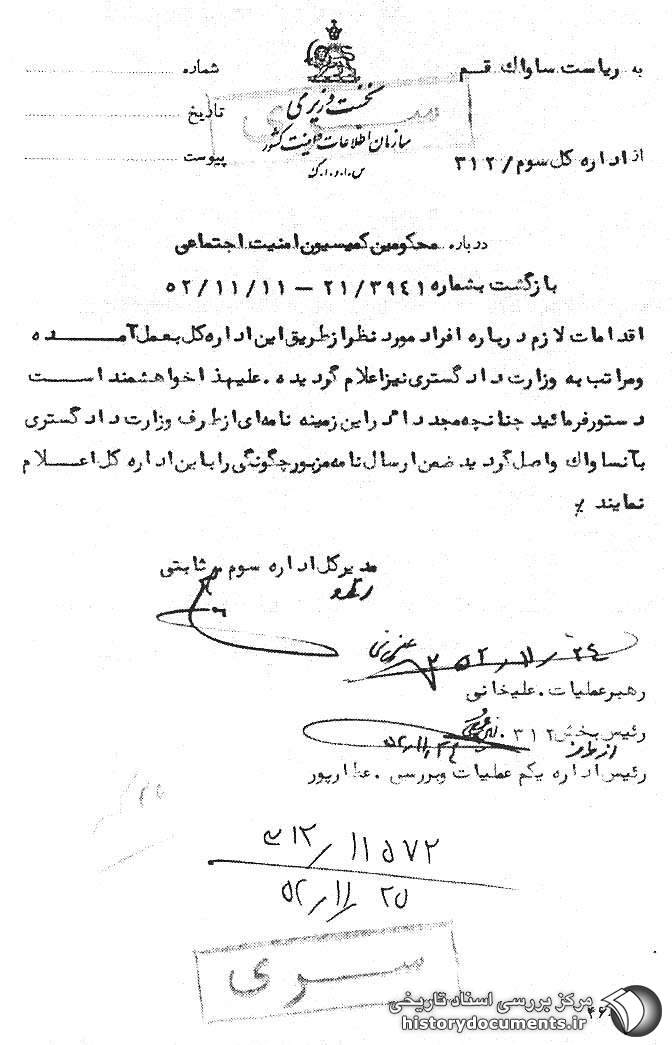 به ریاست ساواک قم
شماره
نخست وزیری
تاریخ
سازمان اطلاعات و امنیت کشور
پیوست
س.ا.و.ا.ک
از اداره کل سوم/ ۳۱۲
سری
درباره محکومین کمیسیون امنیت اجتماعی
بازگشت بشماره ۲۱/۳۹۴۱ – ۵۲/۱۱/۱۱
اقدامات لازم درباره افراد مورد نظر از طریق این اداره کل بعمل آمده
و مراتب به وزارت دادگستری نیز اعلام گردیده . علیهذا خواهشمند است
دستور فرمائید چنانچه مجدداً در این زمینه نامه‌ای از طرف وزارت دادگستری
بآنساواک واصل گردید ضمن ارسال نامه مزبور چگونگی را باین اداره کل اعلام
نمایند
مدیر کل اداره سوم ثابتی
۵۲/۱۱/۲۴
رهبر عملیات . علیخانی
رئیس بخش ۳۱۲ .
۵۲/۱۱/۲۴
رئیس اداره یکم عملیات و بررسی . عطارپور
۳۱۲/۱۱۵۷۲
۵۲/۱۱/۲۵
سری
مرکز بررسی اسناد تاریخی
historydocuments.ir